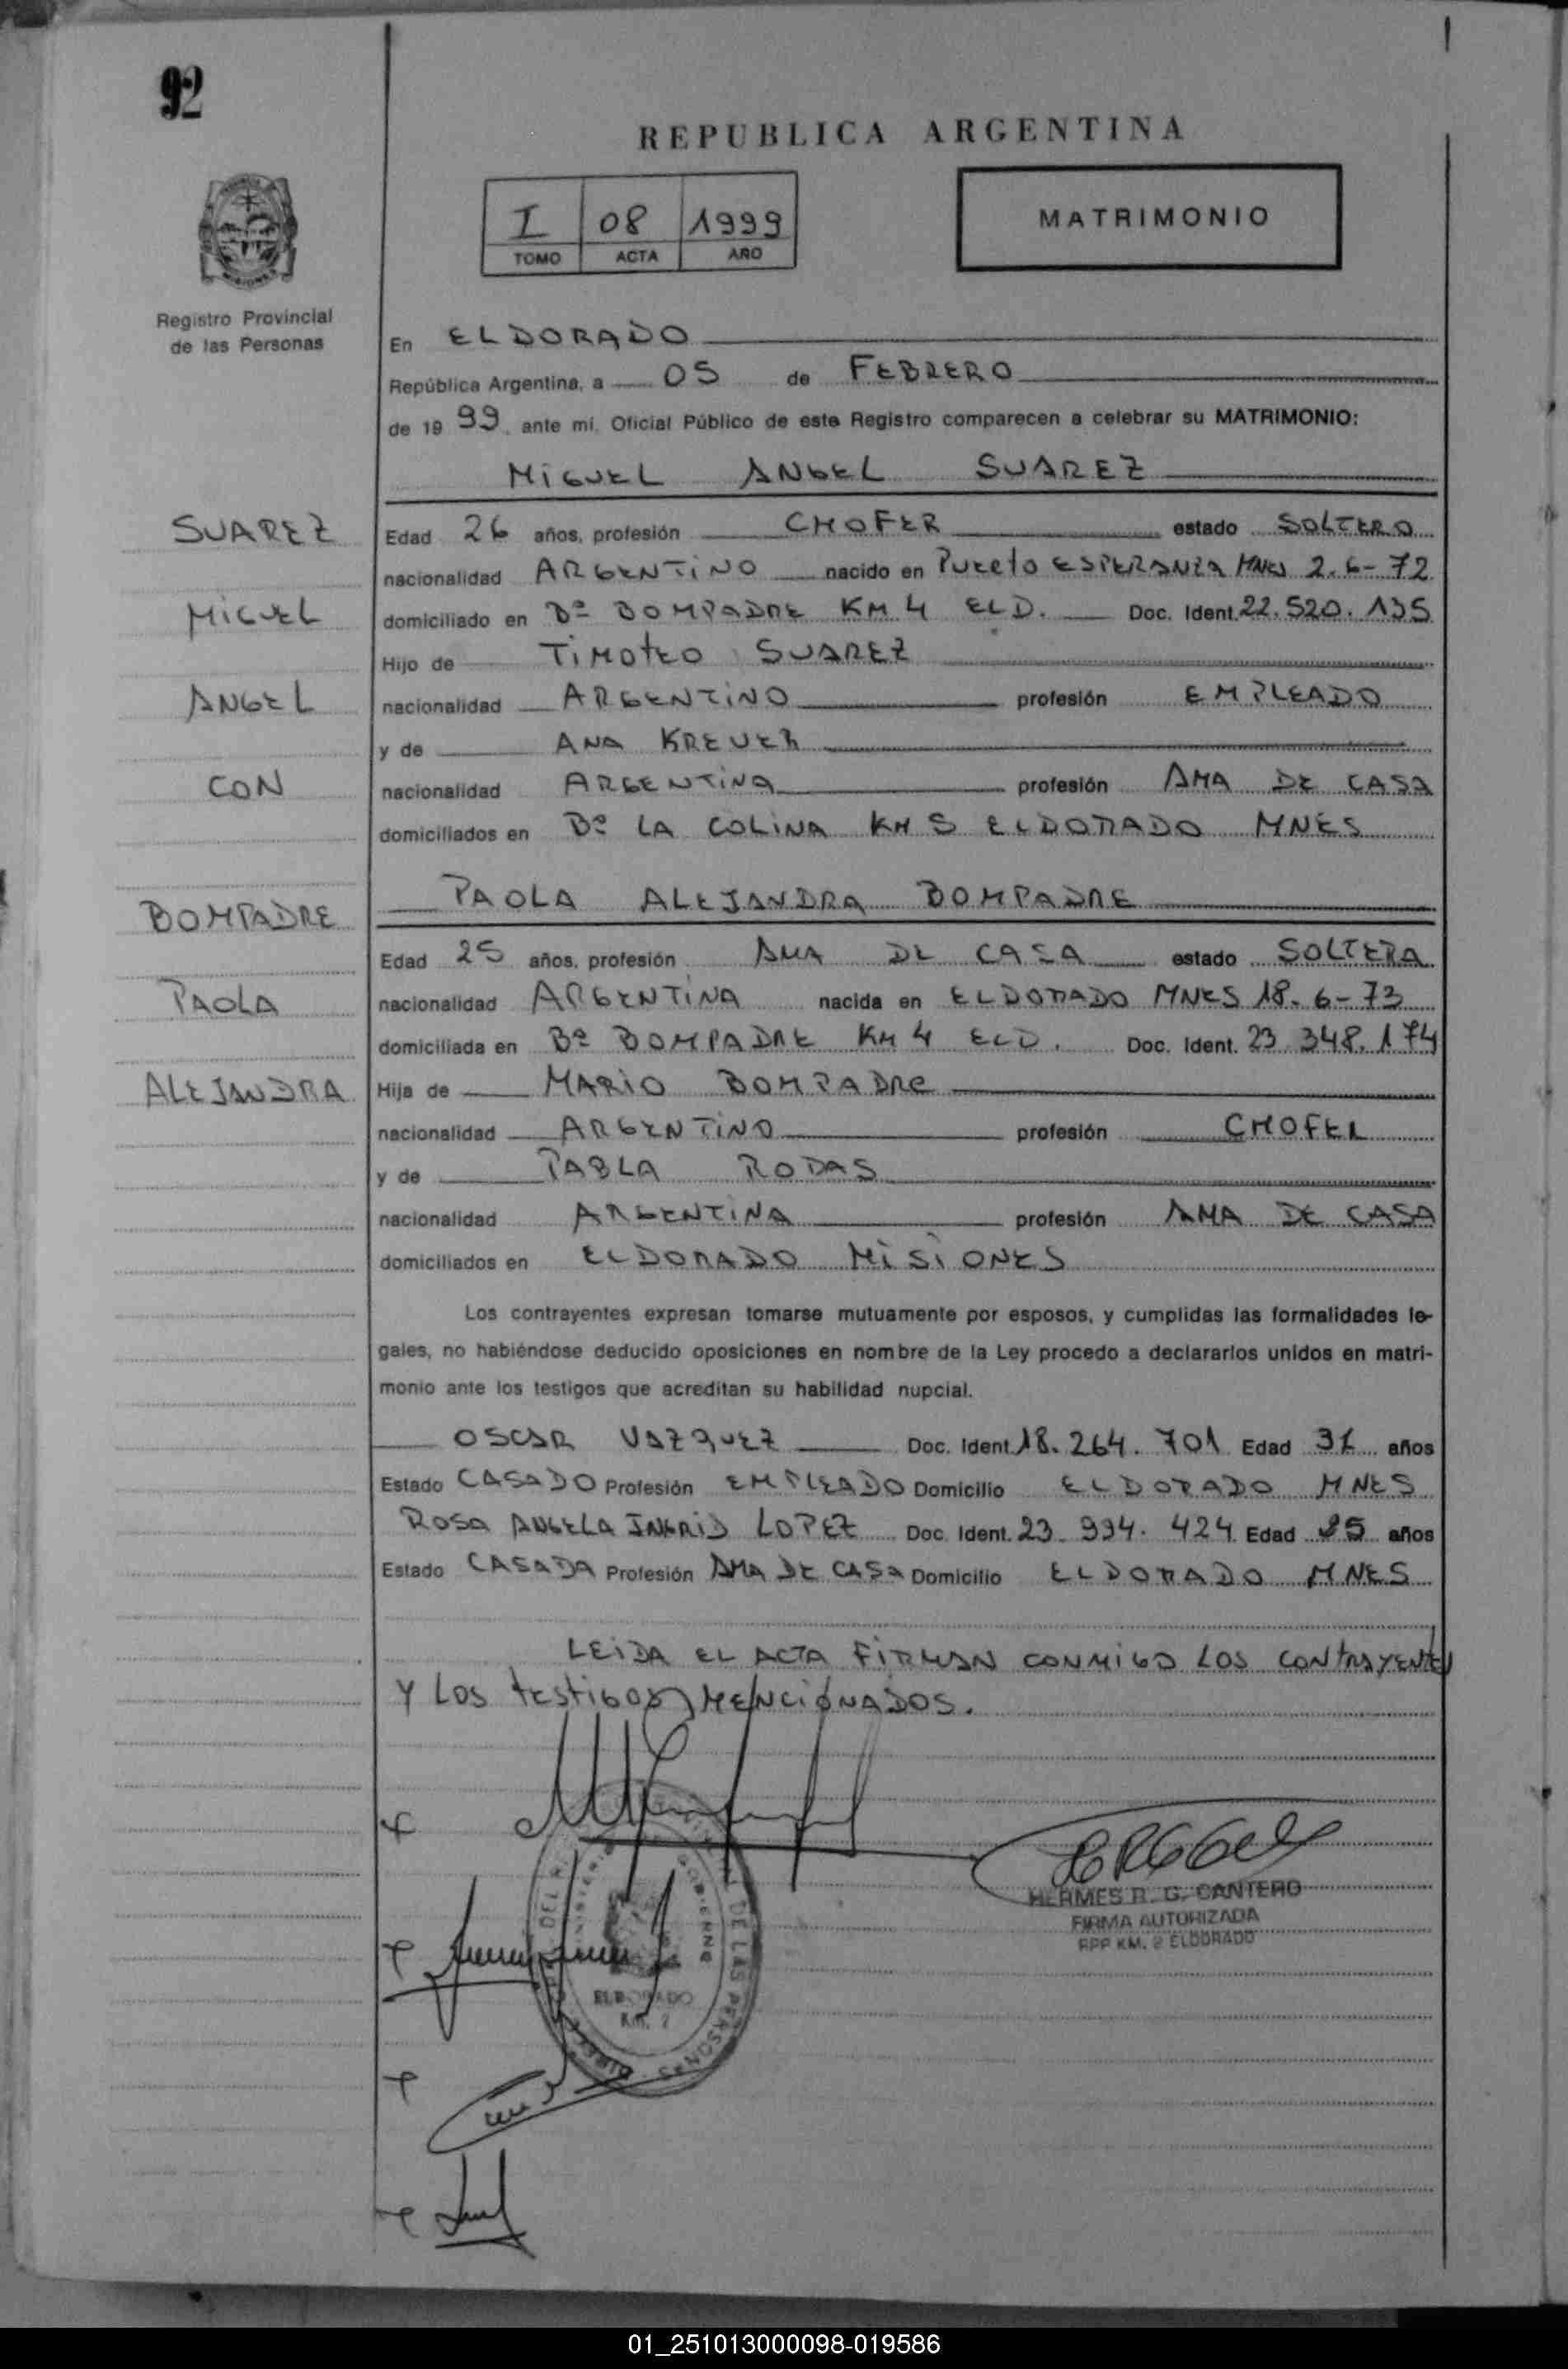 92
REPUBLICA ARGENTINA
I 08 1999
TOMO ACTA AÑO
MATRIMONIO
Registro Provincial
de las Personas
En ELDORADO
República Argentina, a 05 de FEBRERO
de 1999 ante mí, Oficial Público de este Registro comparecen a celebrar su MATRIMONIO:
MIGUEL ANGEL SUAREZ
SUAREZ
MIGUEL
ANGEL
CON
BOMPADRE
PAOLA
ALEJANDRA
Edad 26 años, profesión CHOFER estado SOLTERO
nacionalidad ARGENTINO nacido en PUERTO ESPERANZA MNES 2-6-72
domiciliado en Bº BOMPADRE KM 4 ELD. Doc. Ident. 22.520.135
Hijo de TIMOTEO SUAREZ
nacionalidad ARGENTINO profesión EMPLEADO
y de ANA KREUER
nacionalidad ARGENTINA profesión AMA DE CASA
domiciliados en Bº LA COLINA KM 5 ELDORADO MNES
PAOLA ALEJANDRA BOMPADRE
Edad 25 años, profesión AMA DE CASA estado SOLTERA
nacionalidad ARGENTINA nacida en ELDORADO MNES 18-6-73
domiciliada en Bº BOMPADRE KM 4 ELD. Doc. Ident. 23.348.174
Hija de MARIO BOMPADRE
nacionalidad ARGENTINO profesión CHOFER
y de PABLA RODAS
nacionalidad ARGENTINA profesión AMA DE CASA
domiciliados en ELDORADO MISIONES
Los contrayentes expresan tomarse mutuamente por esposos, y cumplidas las formalidades le-
gales, no habiéndose deducido oposiciones en nombre de la Ley procedo a declararlos unidos en matri-
monio ante los testigos que acreditan su habilidad nupcial.
OSCAR VAZQUEZ Doc. Ident. 18.264.701 Edad 31 años
Estado CASADO Profesión EMPLEADO Domicilio ELDORADO MNES
ROSA ANGELA INGRID LOPEZ Doc. Ident. 23.994.424 Edad 25 años
Estado CASADA Profesión AMA DE CASA Domicilio ELDORADO MNES
LEIDA EL ACTA FIRMAN CONMIGO LOS CONTRAYENTES
Y LOS TESTIGOS MENCIONADOS.
HERMES R. G. CANTERO
FIRMA AUTORIZADA
RPP KM. 2 ELDORADO
ELDORADO
Km. 2
DE LAS PERSONAS
01_251013000098-019586